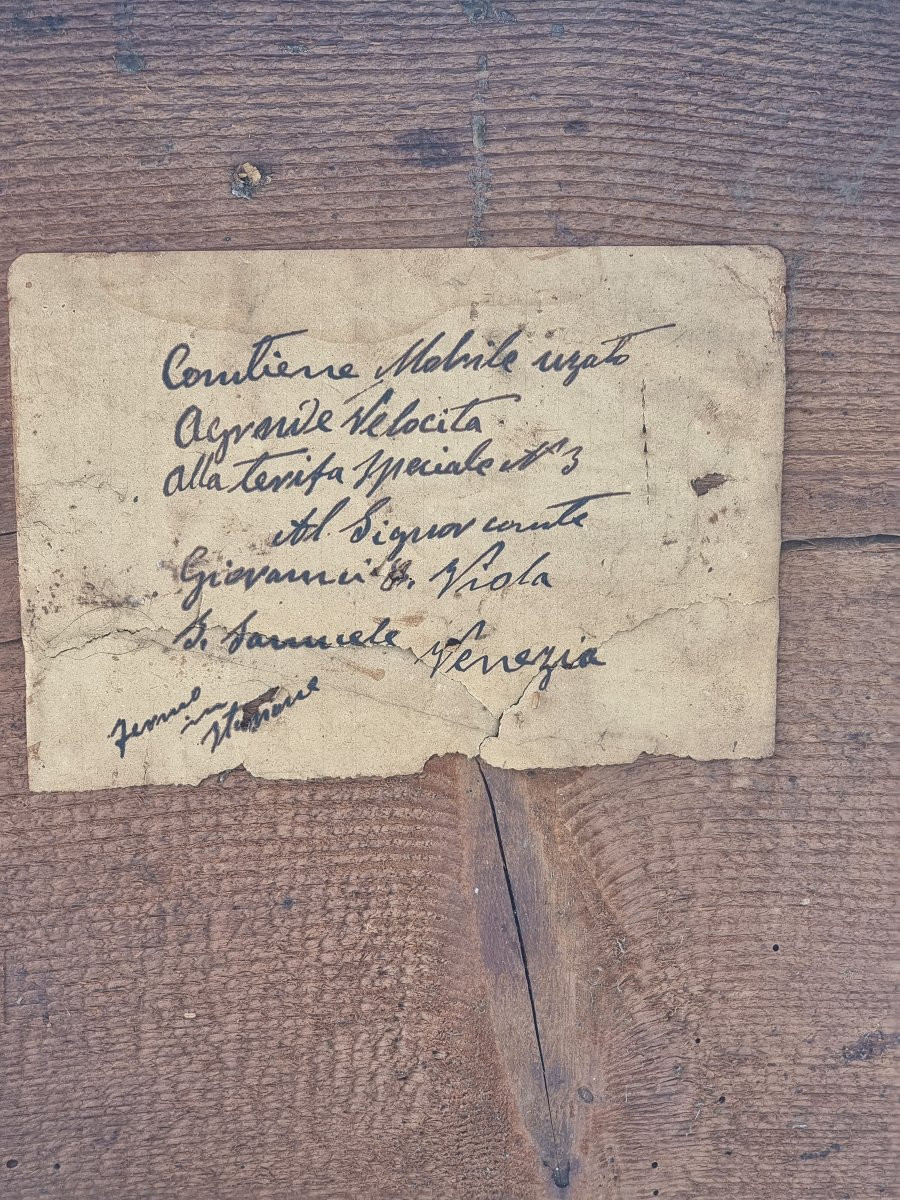 Contiene Mobile uzato
A grande Velocita
alla terifa speciale N° 3
Al Signor conte
Giovanni Viola
S. Samuele Venezia
fermo
in
stazione